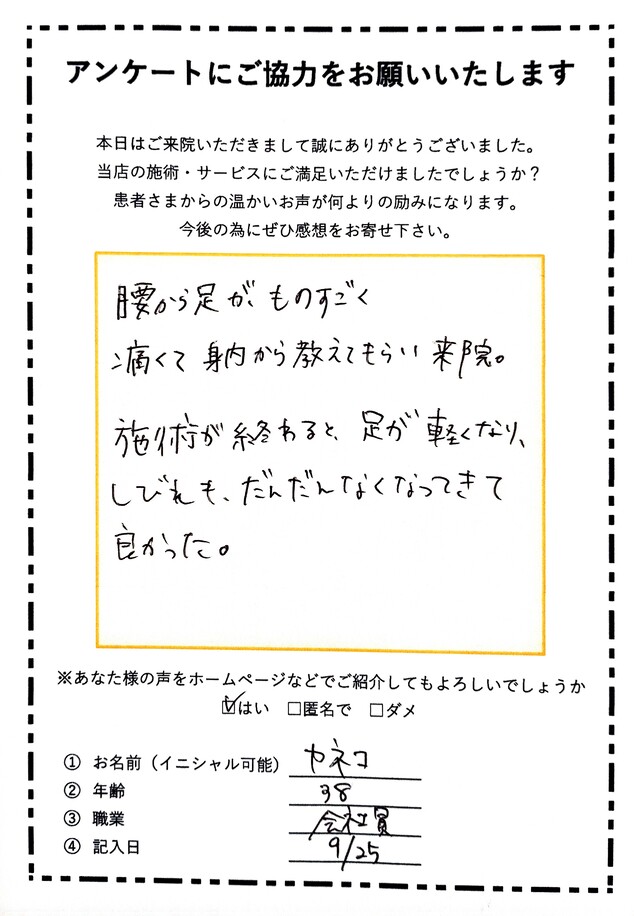 アンケートにご協力をお願いいたします
本日はご来院いただきまして誠にありがとうございました。
当店の施術・サービスにご満足いただけましたでしょうか？
患者さまからの温かいお声が何よりの励みになります。
今後の為にぜひ感想をお寄せ下さい。
腰から足が、ものすごく
痛くて身内から教えてもらい来院。
施術が終わると、足が軽くなり、
しびれも、だんだんなくなってきて
良かった。
※あなた様の声をホームページなどでご紹介してもよろしいでしょうか
☑はい □匿名で □ダメ
① お名前（イニシャル可能） カネコ
② 年齢 38
③ 職業 会社員
④ 記入日 9/25